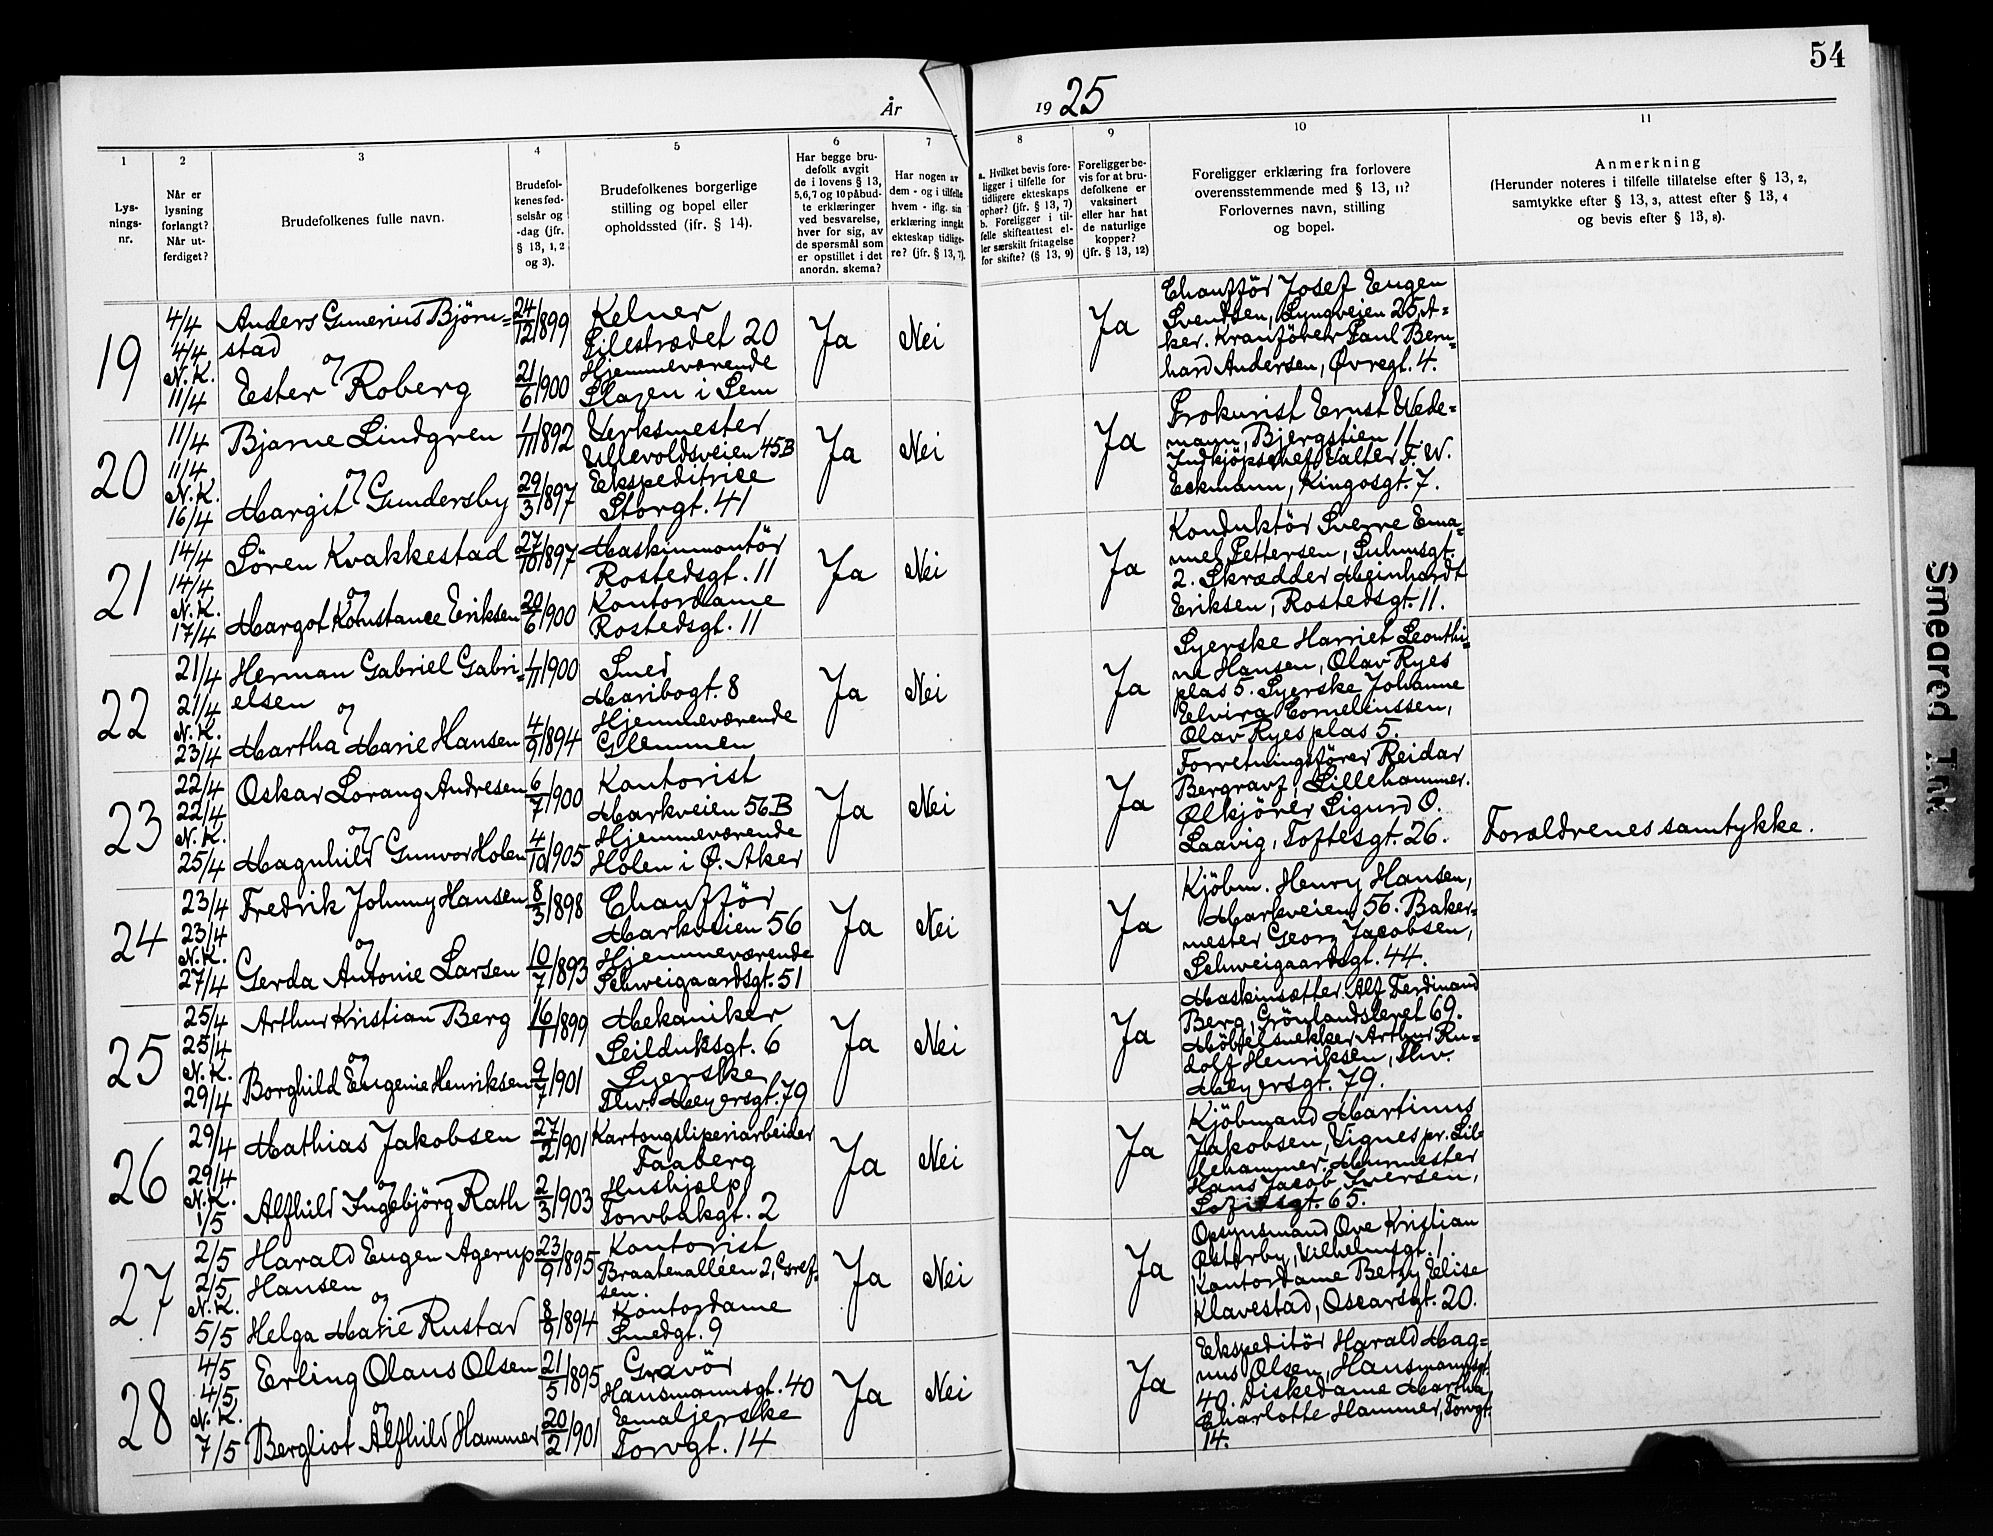 54
År 1925
1
2
3
4
5
6
7
8
9
10
11
Lys-
nings-
nr.
Når er
lysning
forlangt?
Når ut-
ferdiget?
Brudefolkenes fulle navn.
Brudefol-
kenes fød-
selsår og
-dag (jfr.
§ 13, 1, 2
og 3).
Brudefolkenes borgerlige
stilling og bopel eller
opholdssted (ifr. § 14).
Har begge bru-
defolk avgit
de i lovens § 13,
5,6,7 og 10 påbud-
te erklæringer
ved besvarelse,
hver for sig, av
de spørsmål som
er opstillet i det
anordn. skema?
Har nogen av
dem - og i tilfelle
hvem - iflg. sin
erklæring inngått
ekteskap tidlige-
re? (jfr. § 13, 7).
a. Hvilket bevis fore-
ligger i tilfelle for
tidligere ekteskaps
ophør? (jfr. § 13, 7)
b. Foreligger i til-
felle skifteattest el-
ler særskilt fritagelse
for skifte? (§ 13, 9)
Foreligger be-
vis for at bru-
defolkene er
vaksinert
eller har hat
de naturlige
kopper?
(jfr. § 13, 12)
Foreligger erklæring fra forlovere
overensstemmende med § 13, 11?
Forlovernes navn, stilling
og bopel.
Anmerkning
(Herunder noteres i tilfelle tillatelse efter § 13, 2,
samtykke efter § 13, 3, attest efter § 13, 4
og bevis efter § 13, 8).
19
4/4
4/4
N.K.
11/4
Anders Gunerius Bjørn-
stad
og
Ester Roberg
24/12 1899
21/6 1900
Kelner
Pilestrædet 20
Hjemmeværende
Slagen i Sem
Ja
Nei
Ja
Chaufför Josef Eugen
Svendsen, Lyngveien 25, A-
ker. Kranförer Paul Bern-
hard Andersen, Øvregt. 4.
20
11/4
11/4
N.K.
16/4
Bjarne Lindgren
og
Margit Gundersby
1/11 1892
29/3 1897
Verksmester
Ullevoldsveien 45B
Ekspeditrice
Storgt. 41
Ja
Nei
Ja
Prokurist Ernst Wede-
mann, Bjergstien 11.
Indkjöpschef Valter F. W.
Eckmann, Kingosgt. 7.
21
14/4
14/4
N.K.
17/4
Sören Kvakkestad
og
Margot Konstance Eriksen
27/10 1897
20/6 1900
Maskinmontör
Rostedsgt. 11
Kontordame
Rostedsgt. 11
Ja
Nei
Ja
Konduktör Sverre Ema-
nuel Pettersen, Suhmsgt.
2. Skrædder Meinhardt
Eriksen, Rostedsgt. 11.
22
21/4
21/4
N.K.
23/4
Herman Gabriel Gabri-
elsen
og
Martha Marie Hansen
1/11 1900
4/9 1894
Smed
Maribogt. 8
Hjemmeværende
Glemmen
Ja
Nei
Ja
Syerske Harriet Leonthi-
ne Hansen, Olav Ryes
plas 5. Syerske Johanne
Elvira Corneliussen,
Olav Ryes plas 5.
23
22/4
22/4
N.K.
25/4
Oskar Lorang Andresen
og
Magnhild Gunvor Holen
6/7 1900
4/10 1905
Kontorist
Markveien 56B
Hjemmeværende
Holen i Ø. Aker
Ja
Nei
Ja
Forretningsförer Reidar
Bergravf, Lillehammer.
Ølkjörer Sigurd O.
Laavig, Toftesgt. 26.
Forældrenes samtykke.
24
23/4
23/4
N.K.
27/4
Fredrik Johnny Hansen
og
Gerda Antonie Larsen
8/3 1898
10/7 1893
Chaufför
Markveien 56
Hjemmeværende
Schweigaardsgt. 51
Ja
Nei
Ja
Kjöbm. Henry Hansen,
Markveien 56. Baker-
mester Georg Jacobsen,
Schweigaardsgt. 44.
25
25/4
25/4
N.K.
29/4
Arthur Kristian Berg
og
Borghild Eugenie Henriksen
16/1 1899
9/7 1901
Mekaniker
Seilduksgt. 6
Syerske
Thv. Meyersgt. 79
Ja
Nei
Ja
Maskinsætter Alf Ferdinand
Berg, Grönlandsleret 69.
Möbelsnekker Arthur Ru-
dolf Henriksen, Thv.
Meyersgt. 79.
26
29/4
29/4
N.K.
1/5
Mathias Jakobsen
og
Alfhild Ingebjörg Rath
27/2 1901
2/3 1903
Kartongsliperiarbeider
Faaberg
Hushjælp
Torvbakgt. 2
Ja
Nei
Ja
Kjöbmand Martinus
Jakobsen, Vignes pr. Lil-
lehammer. Murmester
Hans Jacob Iversen,
Sofiesgt. 65.
27
2/5
2/5
N.K.
5/5
Harald Eugen Agerup
Hansen
og
Helga Marie Rustad
23/9 1895
8/9 1894
Kontorist
Braatenalléen 2, Gref-
sen.
Kontordame
Smedgt. 9
Ja
Nei
Ja
Opsynsmand Ove Kristian
Østerby, Vilhelmsgt. 1.
Kontordame Betsy Elise
Klavestad, Oscarsgt. 20.
28
4/5
4/5
N.K.
7/5
Erling Olaus Olsen
og
Bergliot Alfhild Hammer
21/5 1895
20/2 1901
Gravör
Hausmannsgt. 40
Emaljerske
Torvgt. 14
Ja
Nei
Ja
Ekspeditör Harald Mag-
nus Olsen, Hausmannsgt.
40. Diskedame Martha
Charlotte Hammer, Torvgt.
14.
Smeared Ink